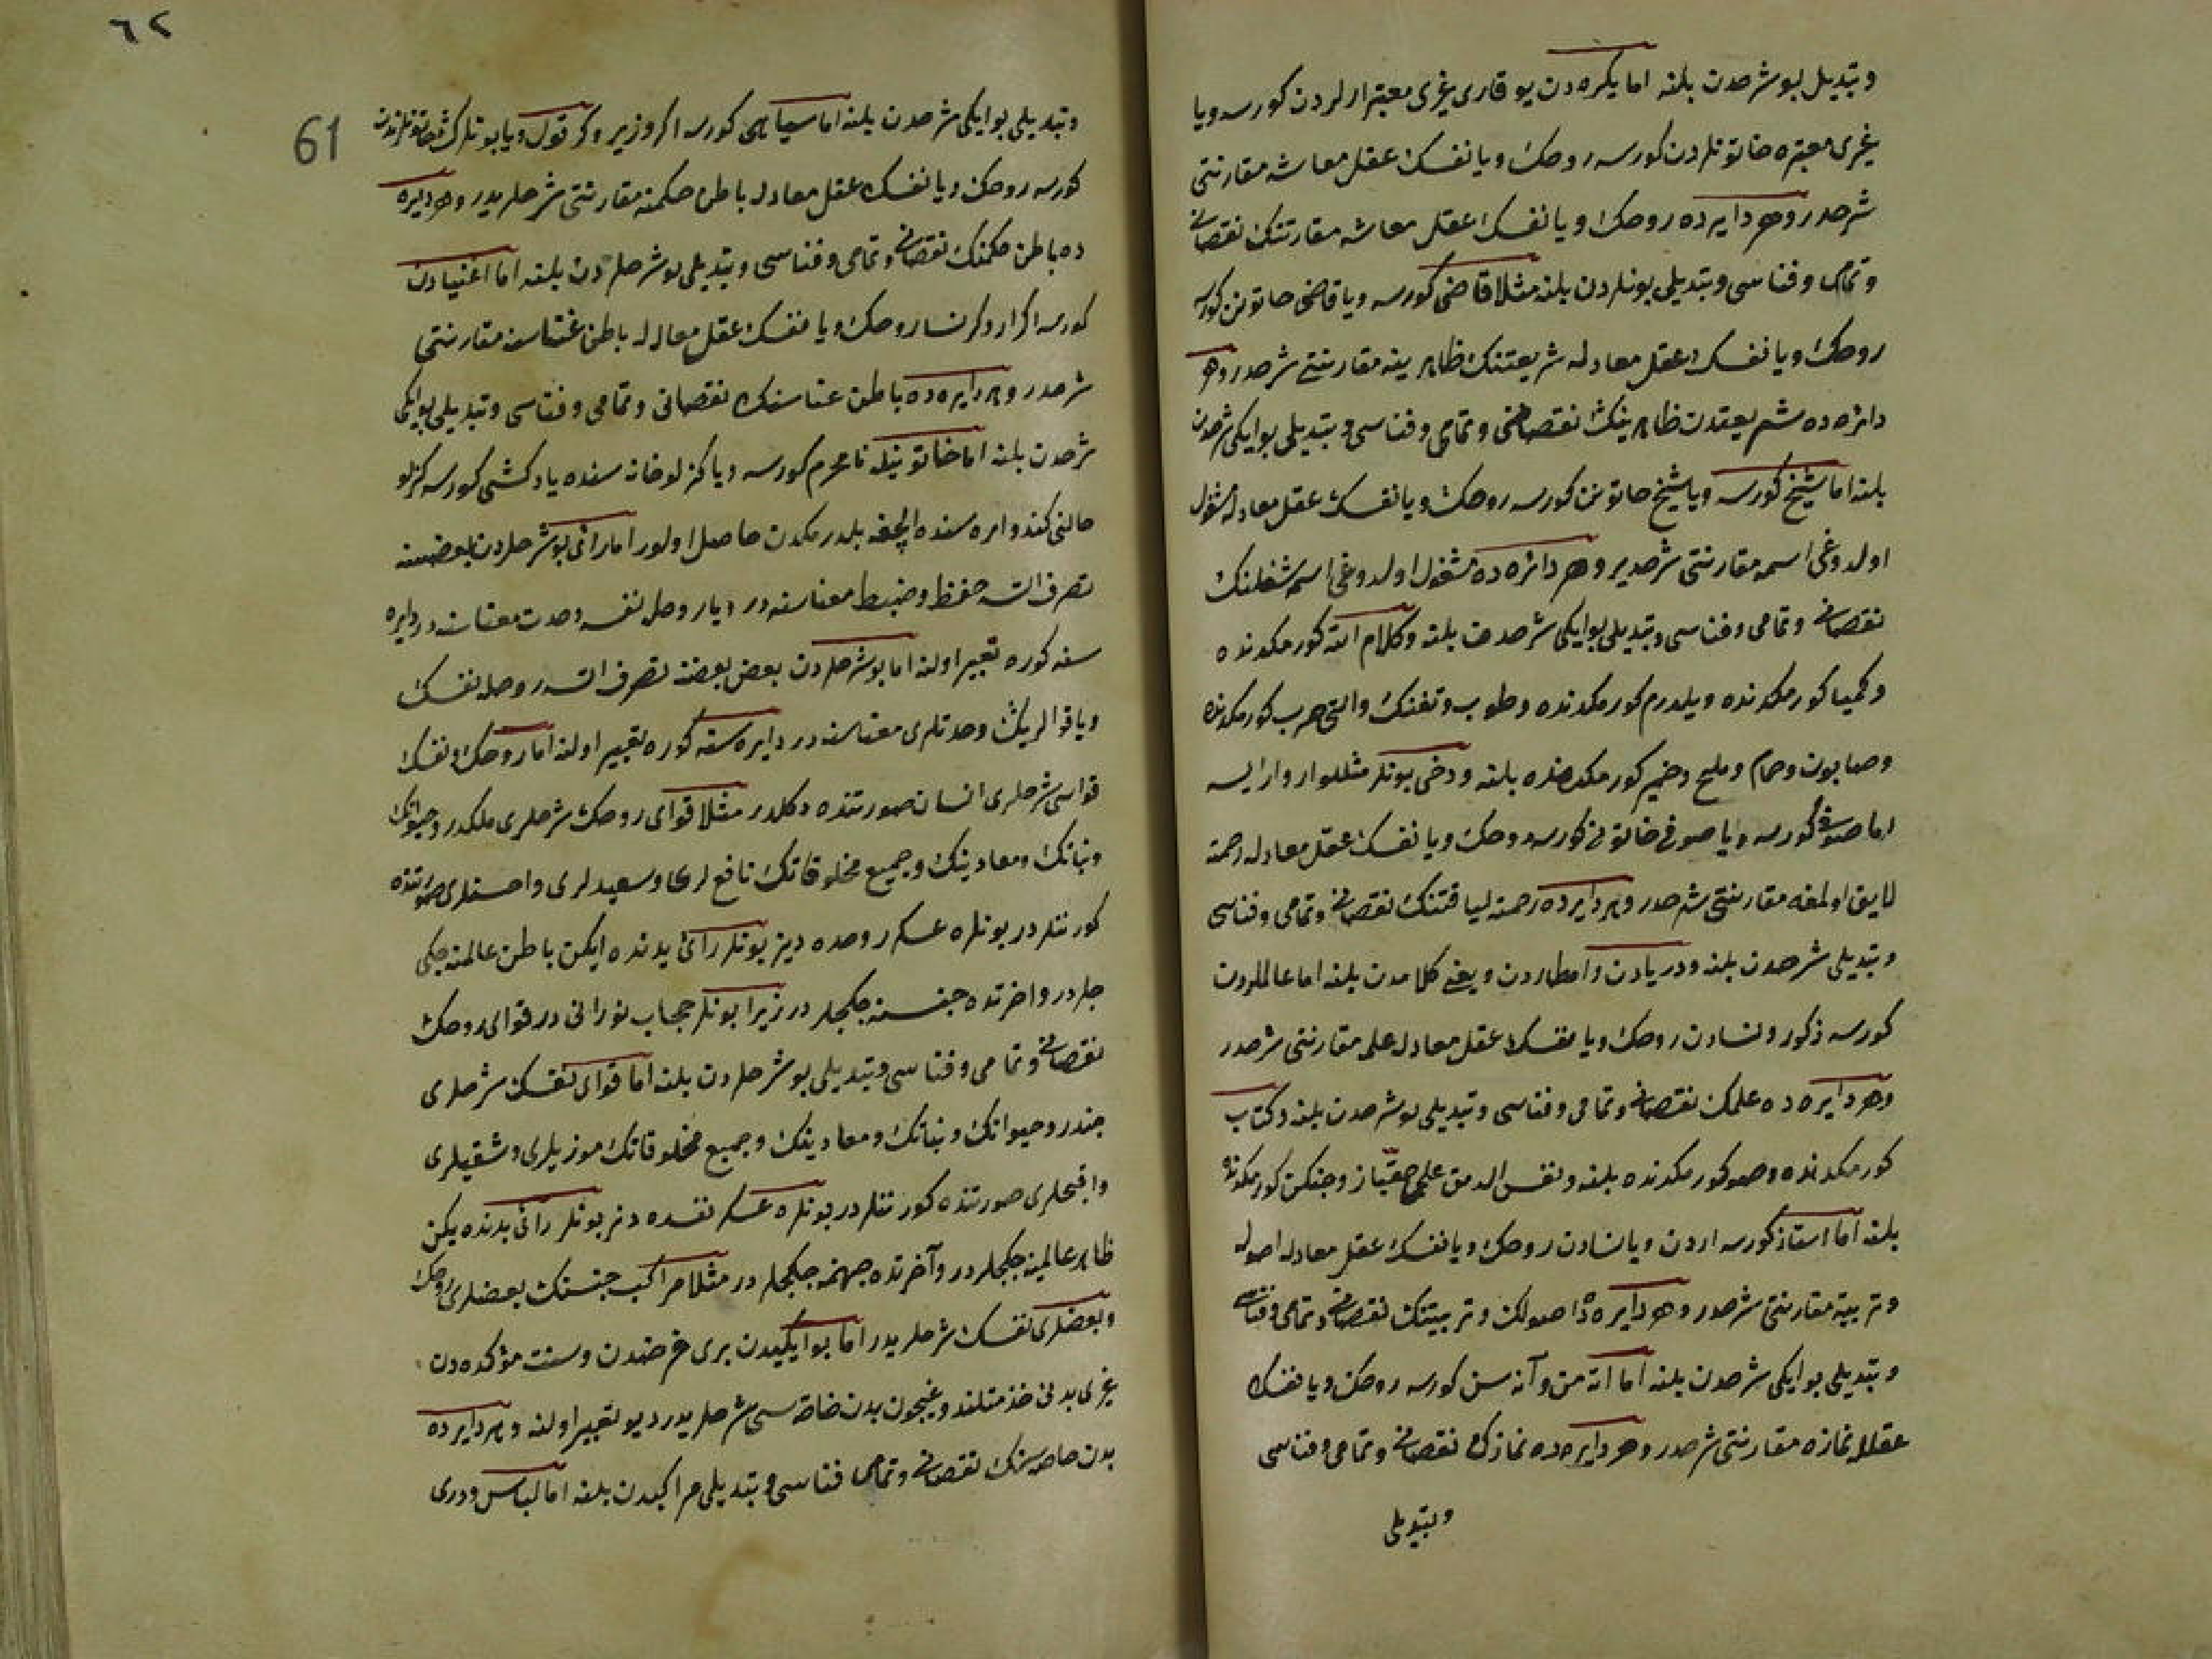 وتبدیل بو شرحدن بلنه اما یکرەدن یوقاری یغری معتبر ارلردن کورسه ویا
یغری معتبره خاتونلردن کورسه روحك ویا نفسك عقل معاشه مقارنتی
شرحدر وهر دایرەده روحك ویا نفسك عقل معاشه مقارنتنك نقصانی
وتمامی وفناسی وتبدیلی بونلردن بلنه مثلا قاضی کورسه ویا قاضی خاتونن کورسه
روحك ویا نفسك عقل معادله شریعتنك ظاهرینه مقارنتی شرحدر وهر
دائرەده شریعتك ظاهرینك نقصانی وتمامی وفناسی وتبدیلی بو ایکی شرحدن
بلنه اما شیخ کورسه ویا شیخ خاتونن کورسه روحك ویا نفسك عقل معادله مشغول
اولدوغی اسمه مقارنتی شرحدیر وهر دائرەده مشغول اولدوغی اسم شغلنك
نقصانی وتمامی وفناسی وتبدیلی بو ایکی شرحدن بلنه وکلام الله کورمکدنده
وکیمیا کورمکدنده ویلدرم کورمکدنده وطوب وتفنك والتی حرب کورمکدنده
وصابون وحمام وملح وخمیر کورمکدنلره بلنه ودخی بونلر مثللو وار وارایسه
اما صوفی کورسه ویا صوفی خاتونی کورسه روحك ویا نفسك عقل معادله رحمته
لایق اولمغه مقارنتی شرحدر وهر دایرەده رحمته لیاقتنك نقصانی وتمامی وفناسی
وتبدیلی شرحدن بلنه ودریادن وامطاردن ویغی کلامدن بلنه اما عالملردن
کورسه ذکور ونسادن روحك ویا نفسك عقل معادله علمه مقارنتی شرحدر
وهر دایرەده علمك نقصانی وتمامی وفناسی وتبدیلی بو شرحدن بلنه وکتاب
کورمکدنده وصو کورمکدنده بلنه ونفس الدمن علمی وجنکن کورمکدنده
بلنه اما استاذ کورسه اردن ویا نسادن روحك ویا نفسك عقل معادله اصوله
وتربیه مقارنتی شرحدر وهر دایرەده اصولك وتربیتنك نقصانی وتمامی وفناسی
وتبدیلی بو ایکی شرحدن بلنه اما اته من وآنه سن کورسه روحك ویا نفسك
عقلله نمازه مقارنتی شرحدر وهر دایرەده نمازك نقصانی وتمامی وفناسی
وتبدیلی
٦٢
61
وتبدیلی بو ایکی شرحدن بلنه اما سپاهی کورسه اکر وزیر وکر قول ویا بونلرك خاتونلرندن
کورسه روحك ویا نفسك عقل معادله باطن حکمته مقارنتی شرحلریدر وهر دیره
ده باطن حکمتك نقصانی وتمامی وفناسی وتبدیلی بو شرحلردن بلنه اما اغنیادن
کورسه اکر ار وکر نسا روحك ویا نفسك عقل معادله باطن غناسنه مقارنتی
شرحدر وهر دایرەده باطن غناسنك نقصانی وتمامی وفناسی وتبدیلی بو ایکی
شرحدن بلنه اما خاتونیله نامحرم کورسه ویا کزلو خانه سنده یاد کشی کورسه کزلو
حالنی کندو ارەسنده الجغه بلدرمکدن حاصل اولور اما رائی بو شرحلردن بعضسنه
تصرف اتسه حفظ وضبط معناسنه در ویا روحله نفسه وحدت معناسنه در دایره
سنه کوره تعبیر اولنه اما بو شرحلردن بعض بعضنه تصرف اتسه روحله نفسك
ویا قوالرینك وحدتلری معناسنه در دایرەسنه کوره تعبیر اولنه اما روحك ونفسك
قواسی شرحلری انسان صورتنده دکلدر مثلا قوای روحك شرحلری ملکدر وحیوانك
ونباتك ومعادینك وجمیع مخلوقاتك نافع لری وسعیدلری واحسنلری صورتنده
کورنتلر در بونلره عسکر روحده دیر بونلر رائی بدنده ایکن باطن عالمنه جکی
جلردر واخرتده جنسنه جکجلر در زیرا بونلر حجاب نورانی در قوای روحك
نقصانی وتمامی وفناسی وتبدیلی بو شرحلردن بلنه اما قوای نفسك شرحلری
جندر وحیوانك ونباتك ومعادینك وجمیع مخلوقاتك موذیلری وشقیلری
واقبحلری صورتنده کورنتلر در بونلره عسکر نفسده دیر بونلر رائی بدنده یکن
ظاهر عالمینه جکجلر در وآخرتده جهنمه جکجلر در مثلا مراکب جنسنك بعضلری روحك
وبعضلری نفسك شرحلریدر اما بو ایکیدن بری فرضدن وسنت مؤکدەدن
یغری بدنی خدمتلند ویغیجون بدن خاصه سی شرحلریدر دیو تعبیر اولنه وهر دایرەده
بدن خاصه سنك نقصانی وتمامی فناسی وتبدیلی مراکبدن بلنه اما لباس ودری